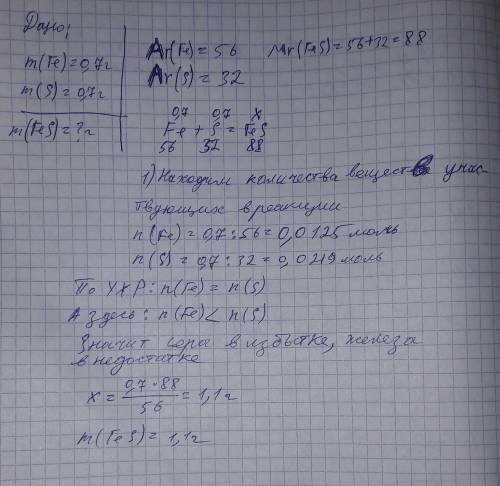 Дано:
m(Fe)=0,7г
m(S)=0,7г
m(FeS)=?г
Ar(Fe)=56 Mr(FeS)=56+32=88
Ar(S)=32
0,7 0,7 x
Fe + S = FeS
56 32 88
1) Находим количества веществ учас-
твующих в реакции
n(Fe)=0,7:56=0,0125 моль
n(S)=0,7:32=0,0219 моль
По УХР: n(Fe)=n(S)
А здесь: n(Fe)<n(S)
Значит сера в избытке, железа
в недостатке
x = 0,7·88 / 56 = 1,1г
m(FeS)=1,1г